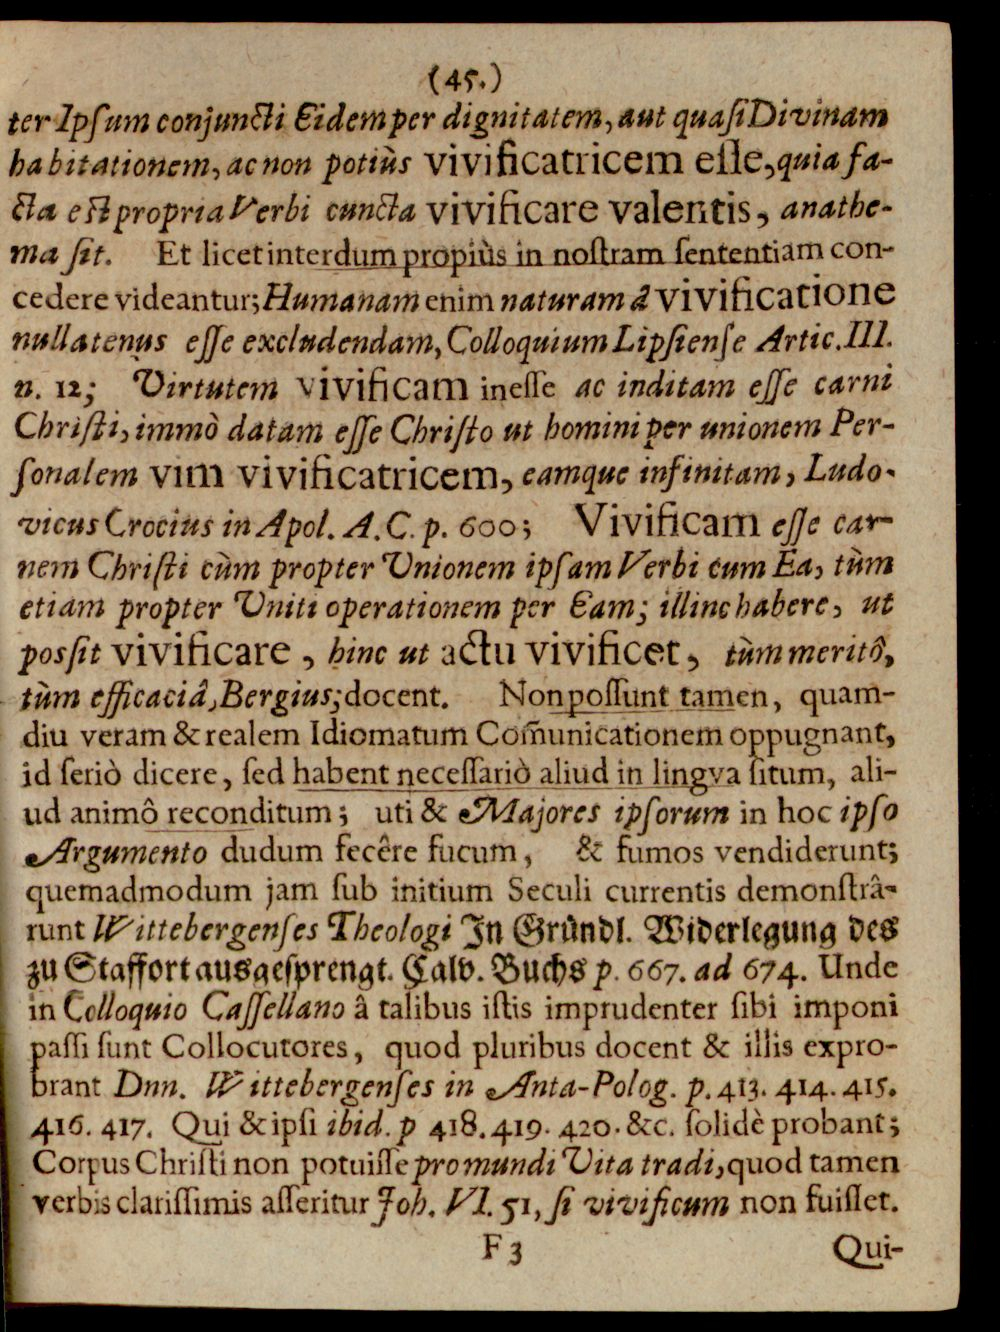 (45.)
ter Ipſum conjuncti Eidem per dignitatem, aut quaſi Divinam
habitationem, ac non potiùs vivificatricem eſſe, quia fa-
cta eſt propria Verbi cuncta vivificare valentis, anathe-
ma ſit. Et licet interdum propiùs in noſtram ſententiam con-
cedere videantur; Humanam enim naturam â vivificatione
nullatenus eſſe excludendam, Colloquium Lipſienſe Artic. III.
n. 12; Virtutem vivificam ineſſe ac inditam eſſe carni
Chriſti, immò datam eſſe Chriſto ut homini per unionem Per-
ſonalem vim vivificatricem, eamque infinitam, Ludo-
vicus Crocius in Apol. A. C. p. 600; Vivificam eſſe car-
nem Chriſti cùm propter Unionem ipſam Verbi cum Ea, tùm
etiam propter Uniti operationem per Eam; illinc habere, ut
posſit vivificare, hinc ut actu vivificet, tùm meritô,
tùm efficaciâ, Bergius; docent. Non poſſunt tamen, quam-
diu veram & realem Idiomatum Com̃unicationem oppugnant,
id ſeriò dicere, ſed habent neceſſariò aliud in lingva ſitum, ali-
ud animô reconditum; uti & Majores ipſorum in hoc ipſo
Argumento dudum fecêre fucum, & fumos vendiderunt;
quemadmodum jam ſub initium Seculi currentis demonſtrâ-
runt Wittebergenſes Theologi In Gründl. Widerlegung des
zu Staffort ausgeſprengt. Calv. Buchs p. 667. ad 674. Unde
in Colloquio Caſſellano â talibus iſtis imprudenter ſibi imponi
paſſi ſunt Collocutores, quod pluribus docent & illis expro-
brant Dnn. Wittebergenſes in Anta-Polog. p. 413. 414. 415.
416. 417. Qui & ipſi ibid. p 418. 419. 420. &c. ſolidè probant;
Corpus Chriſti non potuiſſe pro mundi Vita tradi, quod tamen
verbis clariſſimis aſſeritur Joh. VI. 51, ſi vivificum non fuiſſet.
F 3
Qui-